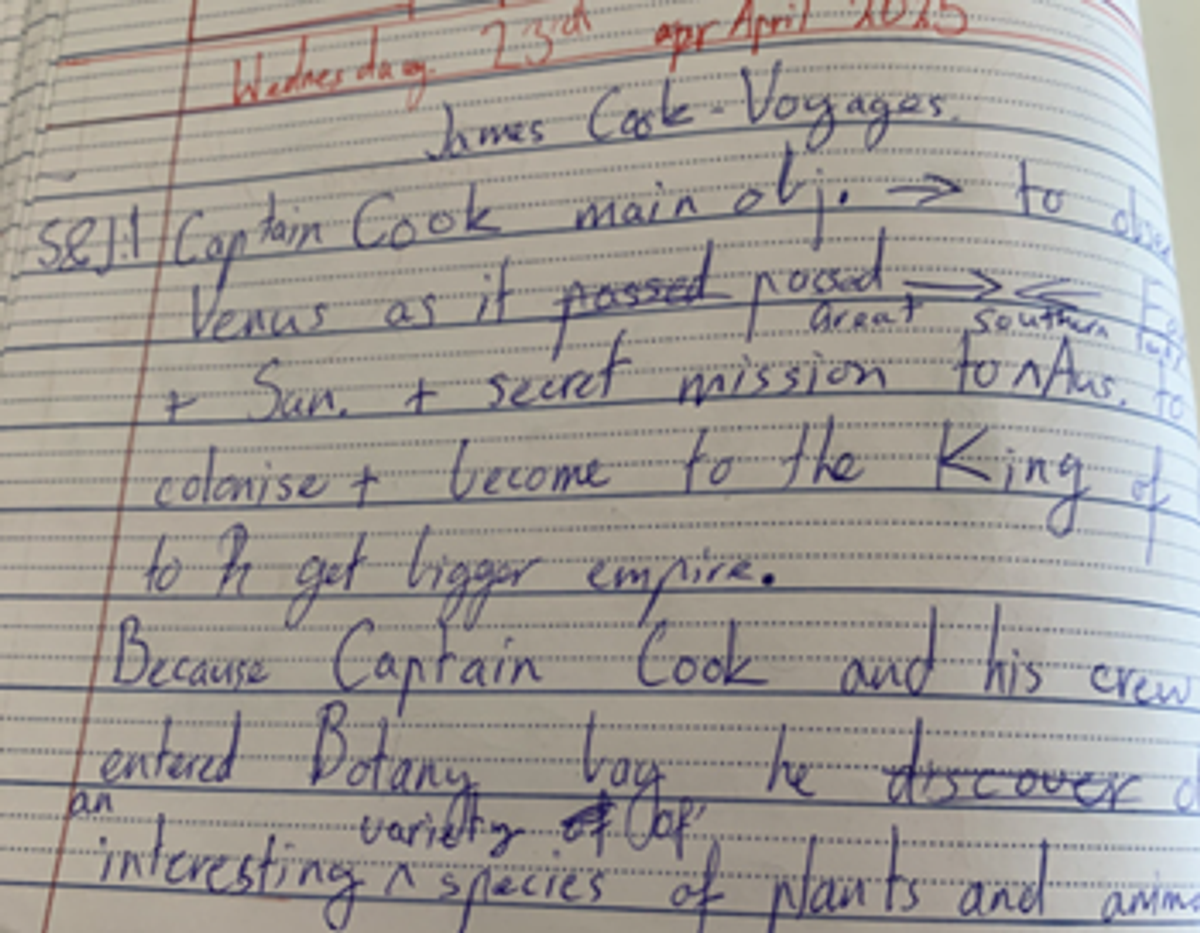 Wednesday 23rd apr April 2025
James Cook - Voyages.
S&J:1 Captain Cook main obj. → to
Venus as it passed passed →←
Great Southern
+ Sun. + secret mission to ^ Aus. to
colonise + become to the King of
to h get bigger empire.
Because Captain Cook and his crew
entered Botany bay he discover
an variety of of
interesting ^ species of plants and